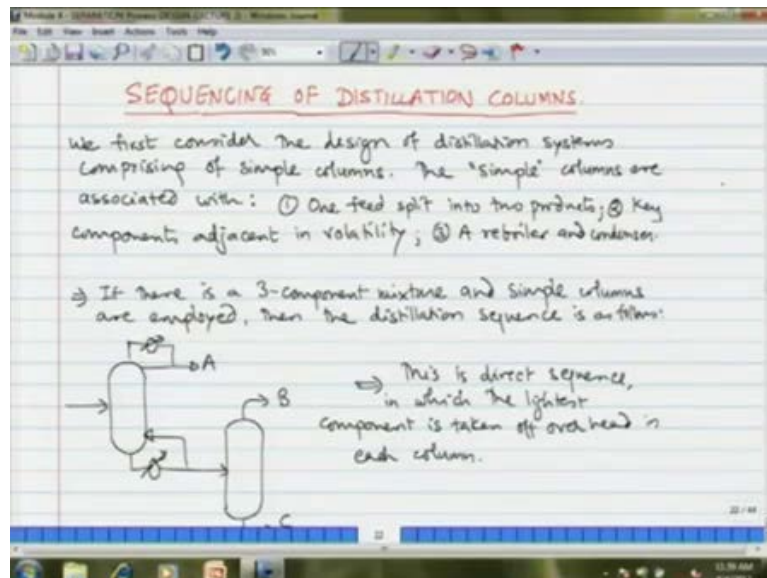 Module 4 - SEPARATION Process DESIGN (LECTURE 2) - Windows Journal
File Edit View Insert Actions Tools Help
SEQUENCING OF DISTILLATION COLUMNS.
We first consider the design of distillation systems
comprising of simple columns. The "simple" columns are
associated with: ① One feed split into two products; ② Key
components adjacent in volatility; ③ A reboiler and condenser.
⇒ If there is a 3-component mixture and simple columns
are employed, then the distillation sequence is as follows:
A
B
C
⇒ This is direct sequence,
in which the lightest
component is taken off overhead in
each column.
22 / 44
22
11:39 AM